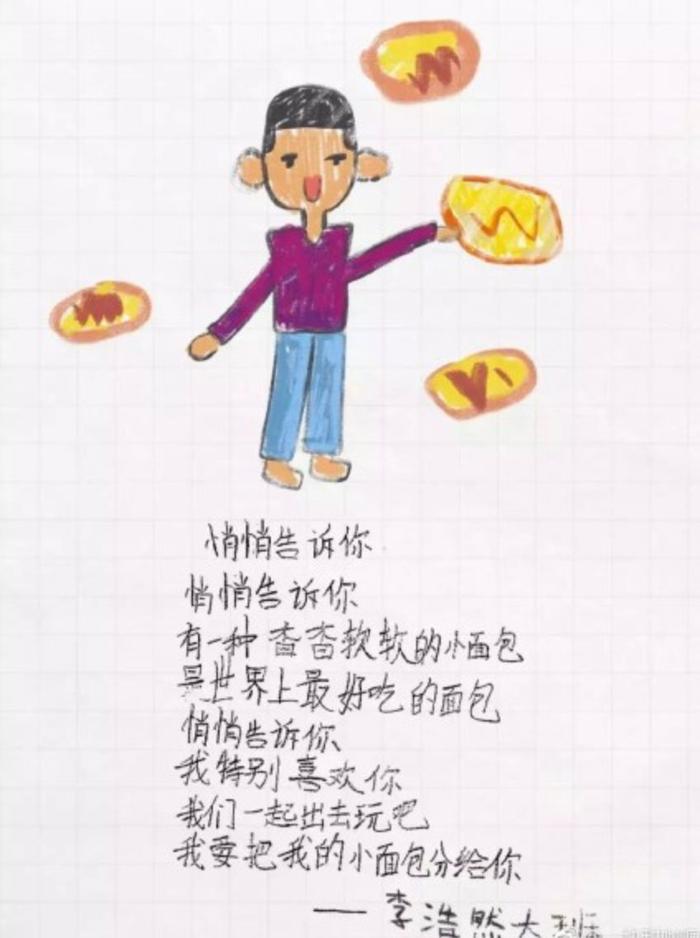 悄悄告诉你
悄悄告诉你
有一种 香香软软的小面包
是世界上最好吃的面包
悄悄告诉你
我特别喜欢你
我们一起出去玩吧
我要把我的小面包分给你
—— 李浩然大班